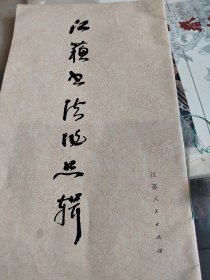 江蘇书法作品辑
江苏人民出版社